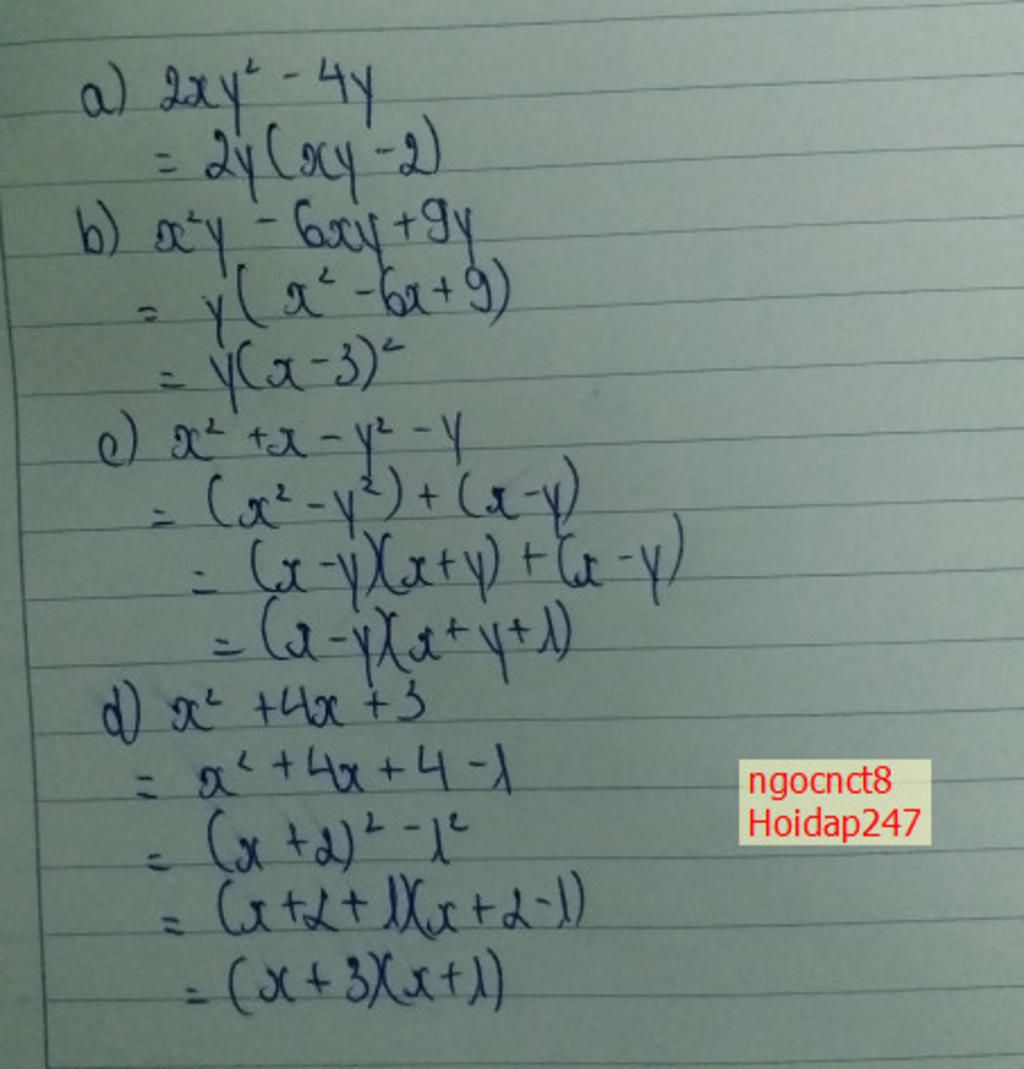 a) 2xy² - 4y
= 2y(xy - 2)
b) x²y - 6xy + 9y
= y(x² - 6x + 9)
= y(x - 3)²
c) x² + x - y² - y
= (x² - y²) + (x - y)
= (x - y)(x + y) + (x - y)
= (x - y)(x + y + 1)
d) x² + 4x + 3
= x² + 4x + 4 - 1
= (x + 2)² - 1²
= (x + 2 + 1)(x + 2 - 1)
= (x + 3)(x + 1)
ngocnct8
Hoidap247